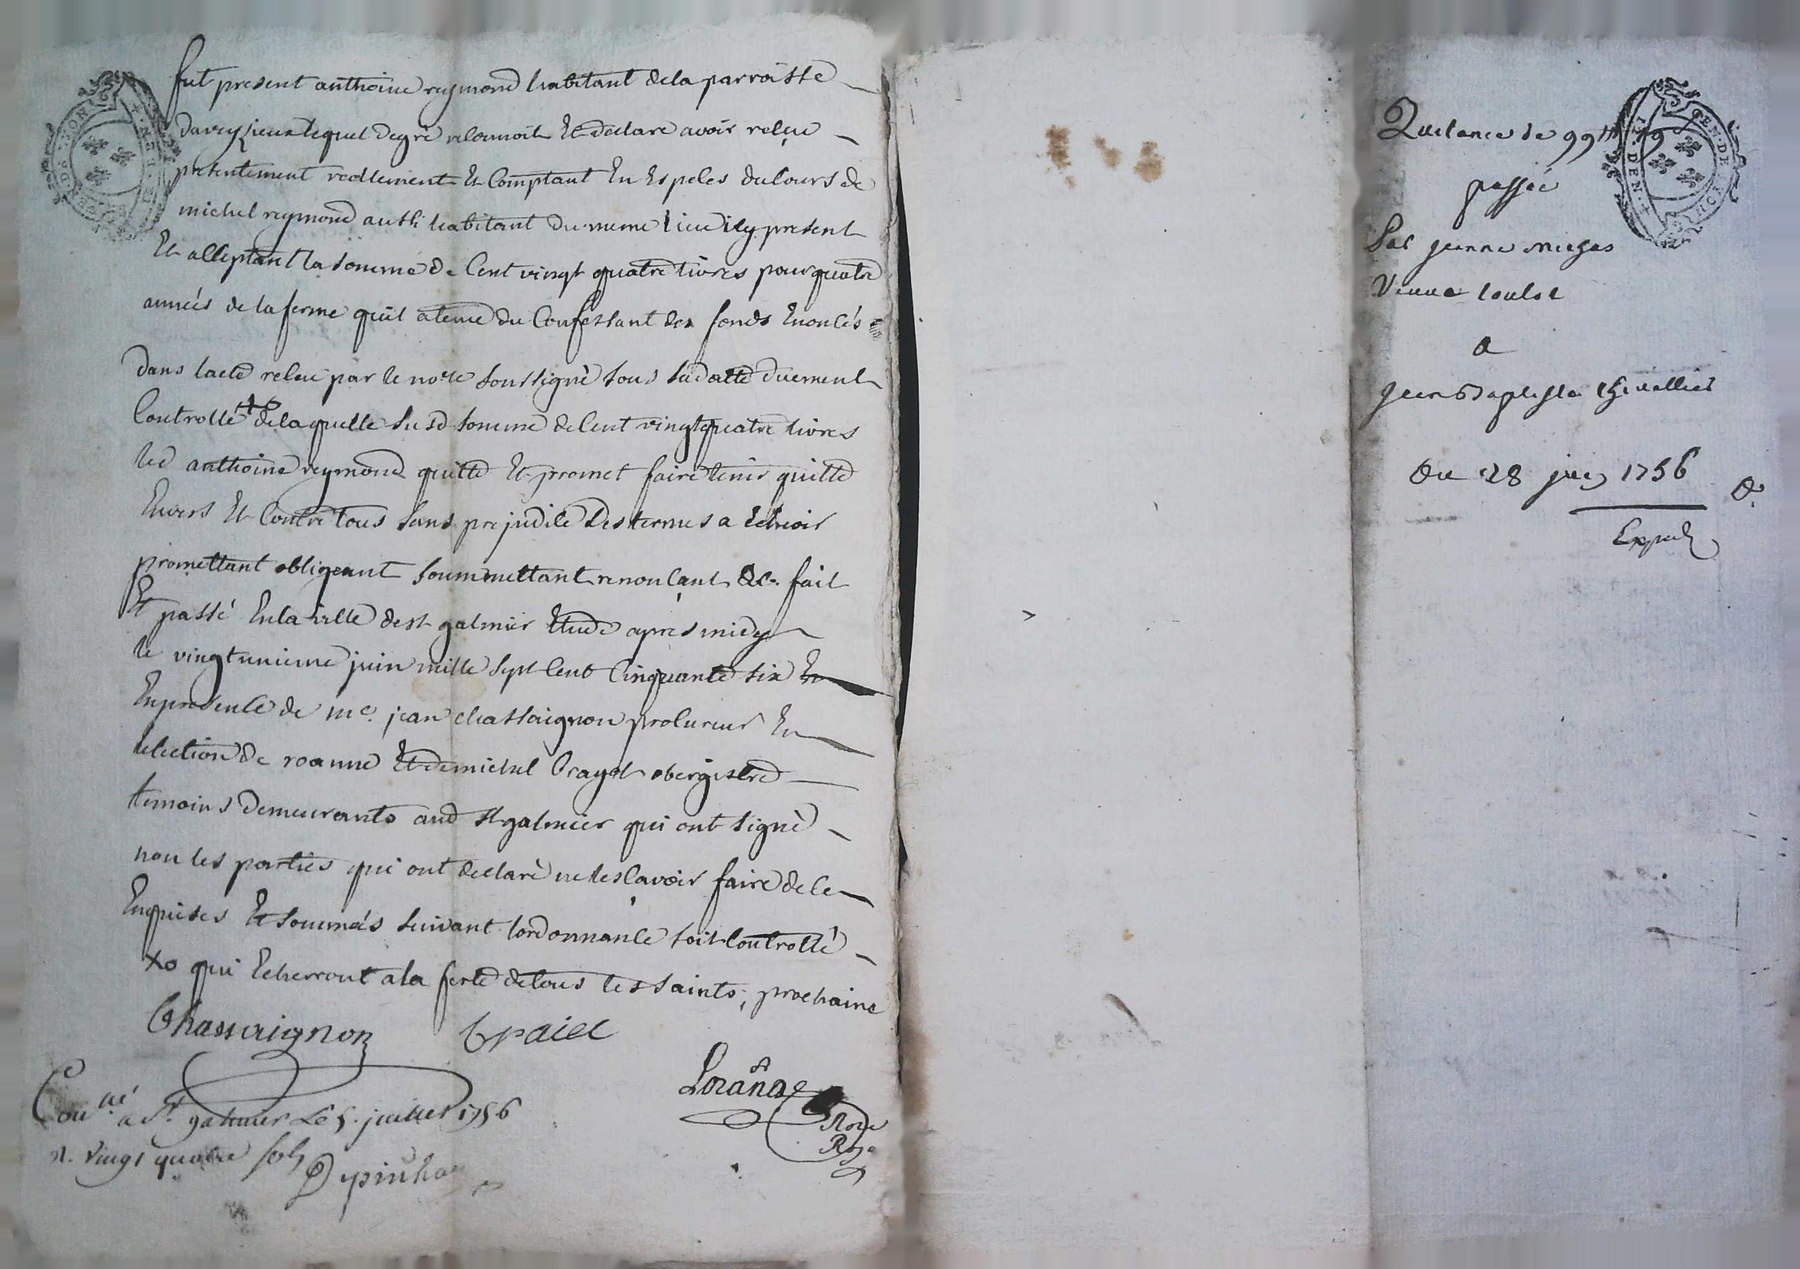 fut present anthoine reymond habitant dela parroisse
daveyzieux lequel de gre reconnoit Et declare avoir reçue
presentement reellement Et Comptant En Especes du cours de
michel reymond aussi habitant du meme lieu icy present
Et acceptant la somme de Cent vingt quatre livres pour quatre
années de la ferme quil atenue du Confessant des fonds Enoncés
dans lacte reçeu par le nore soussigné sous sa datte duement
Controllé +o de la quelle susd somme de Cent vingt quatre livres
led anthoine reymond quitte Et promet faire tenir quitte
Envers Et Contre tous sans prejudice des termes a Echeoir
promettant obligeant soummettant renonçant &c. fait
Et passé En la ville de st galmier Etude apres midy
le vingtunieme juin mille sept Cent Cinquante six En
En presence de me. jean chassaignon procureur En
lelection de roanne Et de michel obergistre
temoins demeurants aud st galmier qui ont signé
non les parties qui ont declaré ne le sçavoir faire de ce
Enquises Et sommés suivant lordonnance soit Controllé
+o qui Echerront a la feste de tous les saints, prochaine
Chassaignon
Conné a St. galmier Le 5. juillet 1756
r. vingt quatre sols
GEN. DE LYON
Quitance de 99 tt
passée
Par jeanne
Veuve
a
jean Baptiste Chevallier
Du 28 juin 1756
Exped
GEN. DE LYON